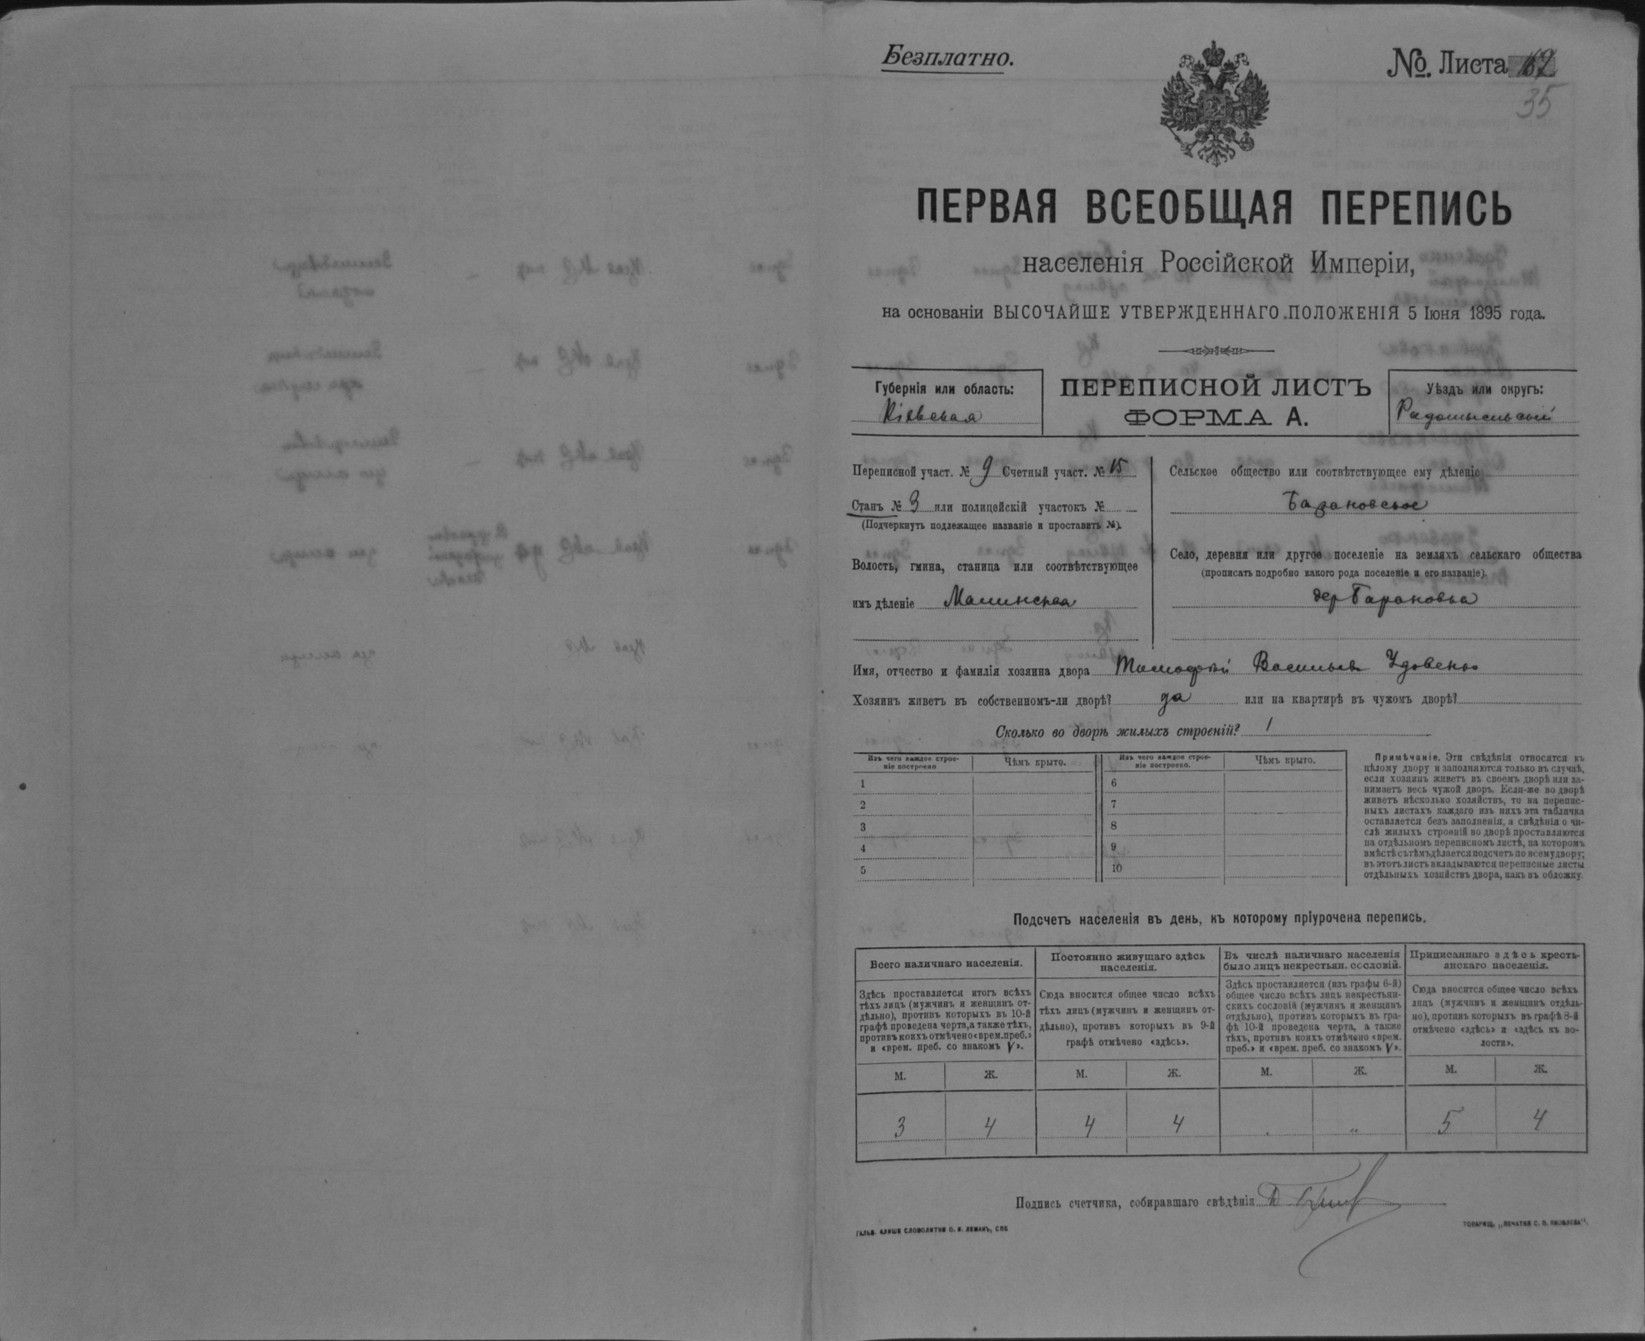 Безплатно.
№. Листа
35
ПЕРВАЯ ВСЕОБЩАЯ ПЕРЕПИСЬ
населенія Россійской Имперіи,
на основаніи ВЫСОЧАЙШЕ УТВЕРЖДЕННАГО ПОЛОЖЕНІЯ 5 Іюня 1895 года.
Губернія или область:
Кіевская
ПЕРЕПИСНОЙ ЛИСТЪ
ФОРМА А.
Уѣздъ или округъ:
Радомысльскій
Переписной участ. № 9 Счетный участ. № 15
Станъ № 3 или полицейскій участокъ №
(Подчеркнуть подлежащее названіе и проставить №).
Волость, гмина, станица или соотвѣтствующее
имъ дѣленіе Малинская
Сельское общество или соотвѣтствующее ему дѣленіе
Барановское
Село, деревня или другое поселеніе на земляхъ сельскаго общества
(прописать подробно какого рода поселеніе и его названіе).
дер Барановка
Имя, отчество и фамилія хозяина двора Тимофей Васильев Удовенко
Хозяинъ живетъ въ собственномъ-ли дворѣ? да или на квартирѣ въ чужомъ дворѣ?
Сколько во дворѣ жилыхъ строеній? 1
Изъ чего каждое строе-
ніе построено
Чѣмъ крыто.
Изъ чего каждое строе-
ніе построено.
Чѣмъ крыто.
1 6
2 7
3 8
4 9
5 10
Примѣчаніе. Эти свѣдѣнія относятся къ
цѣлому двору и заполняются только въ случаѣ,
если хозяинъ живетъ въ своемъ дворѣ или за-
нимаетъ весь чужой дворъ. Если-же во дворѣ
живетъ нѣсколько хозяйствъ, то на перепис-
ныхъ листахъ каждаго изъ нихъ эта табличка
оставляется безъ заполненія, а свѣдѣнія о чи-
слѣ жилыхъ строеній во дворѣ проставляются
на отдѣльномъ переписномъ листѣ, на которомъ
вмѣстѣ съ тѣмъ дѣлается подсчетъ по всему двору;
въ этотъ листъ вкладываются переписные листы
отдѣльныхъ хозяйствъ двора, какъ въ обложку.
Подсчетъ населенія въ день, къ которому пріурочена перепись.
Всего наличнаго населенія.
Здѣсь проставляется итогъ всѣхъ
тѣхъ лицъ (мужчинъ и женщинъ от-
дѣльно), противъ которыхъ въ 10-й
графѣ проведена черта, а также тѣхъ,
противъ коихъ отмѣчено «врем. преб.»
и «врем. преб. со знакомъ V».
Постоянно живущаго здѣсь
населенія.
Сюда вносится общее число всѣхъ
тѣхъ лицъ (мужчинъ и женщинъ от-
дѣльно), противъ которыхъ въ 9-й
графѣ отмѣчено «здѣсь».
Въ числѣ наличнаго населенія
было лицъ некрестьян. сословій.
Здѣсь проставляется (изъ графы 6-й)
общее число всѣхъ лицъ некрестьян-
скихъ сословій (мужчинъ и женщинъ
отдѣльно), противъ которыхъ въ гра-
фѣ 10-й проведена черта, а также
тѣхъ, противъ коихъ отмѣчено «врем.
преб.» и «врем. преб. со знакомъ V».
Приписаннаго здѣсь кресть-
янскаго населенія.
Сюда вносится общее число всѣхъ
лицъ (мужчинъ и женщинъ отдѣль-
но), противъ которыхъ въ графѣ 8-й
отмѣчено «здѣсь» и «здѣсь къ во-
лости».
М. Ж. М. Ж. М. Ж. М. Ж.
3 4 4 4 . „ 5 4
Подпись счетчика, собиравшаго свѣдѣнія
ГАЛЬВ. КЛИШЕ СЛОВОЛИТНИ О. И. ЛЕМАНЪ, СПБ.
ТОВАРИЩ. „ПЕЧАТНЯ С. П. ЯКОВЛЕВА".